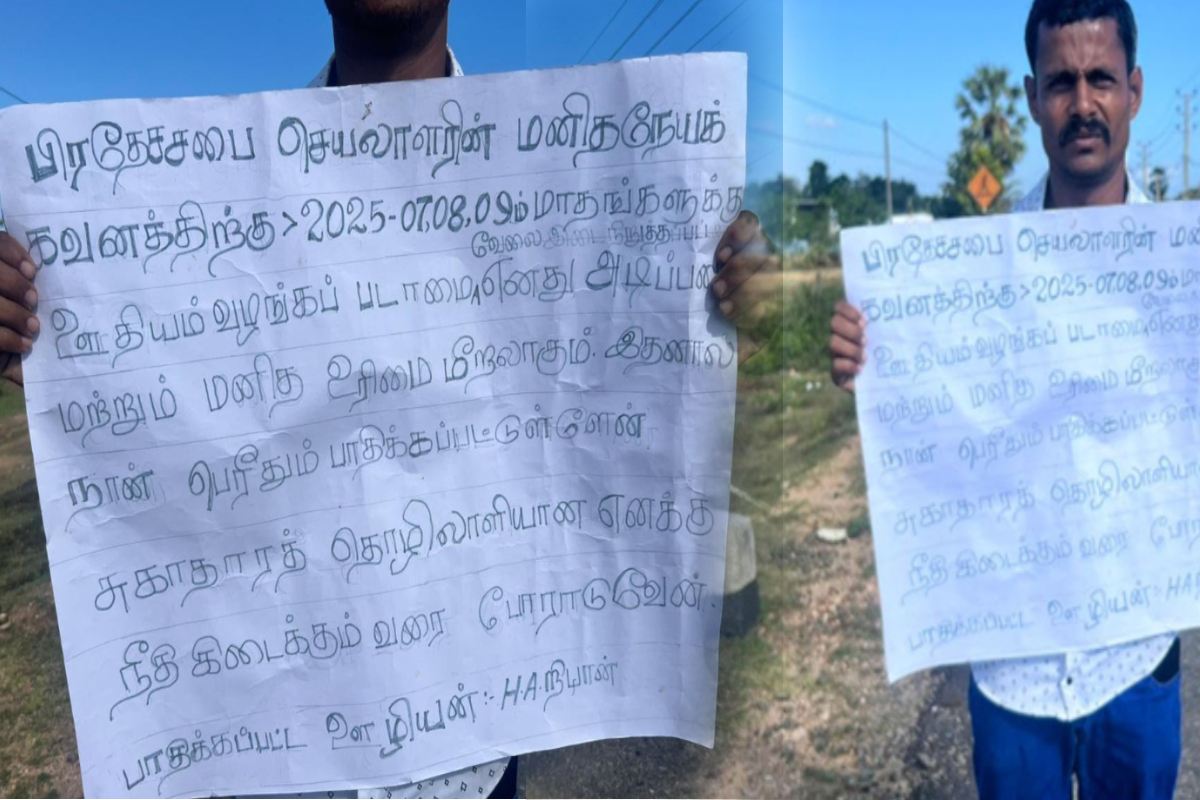 பிரதேசசபை செயலாளரின் மனிதநேயக்
கவனத்திற்கு > 2025-07.08.09ம் மாதங்களுக்கு
வேலை இடை நிறுத்தப்பட்டு
ஊதியம் வழங்கப் படாமை, எனது அடிப்படை
மற்றும் மனித உரிமை மீறலாகும். இதனால்
நான் பெரிதும் பாதிக்கப்பட்டுள்ளேன்
சுகாதாரத் தொழிலாளியான எனக்கு
நீதி கிடைக்கும் வரை போராடுவேன்.
பாதிக்கப்பட்ட ஊழியன் :- H.A.நிபான்
பிரதேசசபை செயலாளரின் மனி
கவனத்திற்கு > 2025-07.08.09ம் மா
ஊதியம் வழங்கப் படாமை, எனது
மற்றும் மனித உரிமை மீறலாகு
நான் பெரிதும் பாதிக்கப்பட்டுள்
சுகாதாரத் தொழிலாளியா
நீதி கிடைக்கும் வரை போரா
பாதிக்கப்பட்ட ஊழியன் :- HA